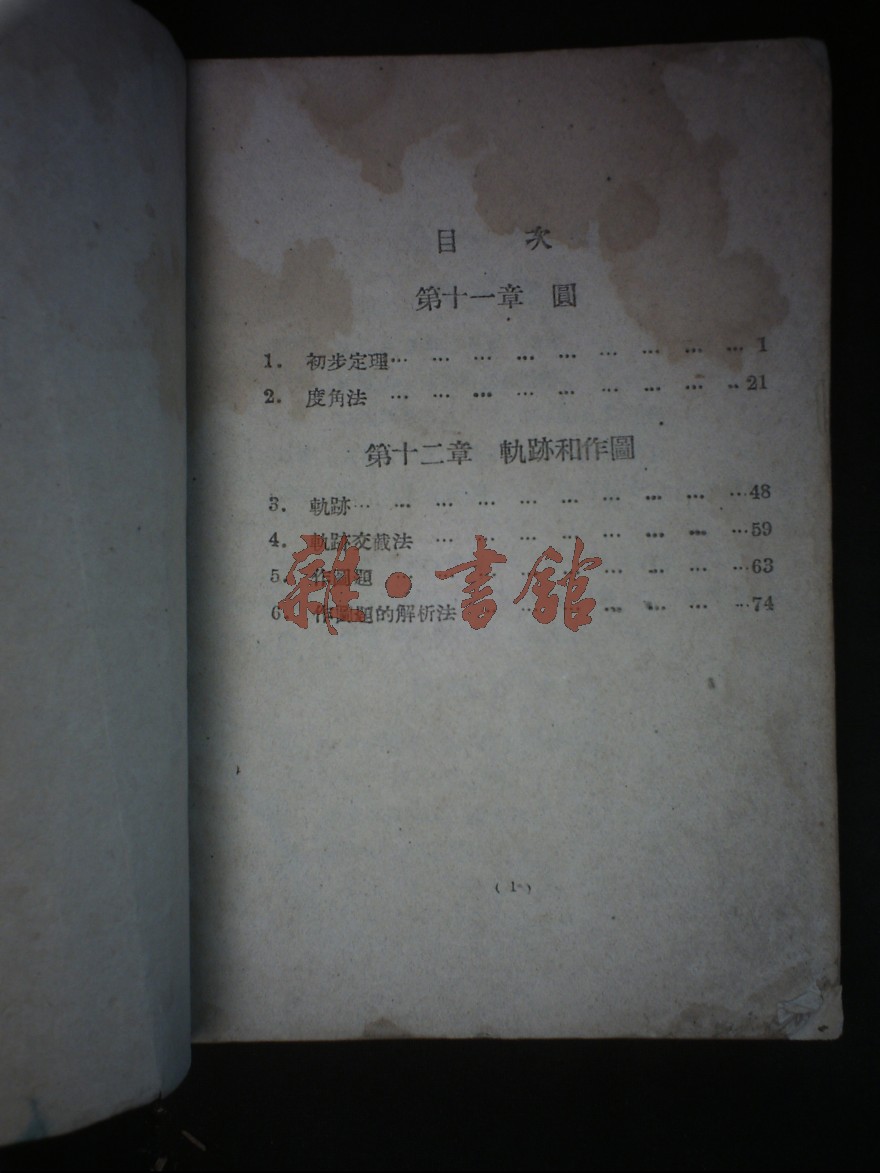 目 次
第十一章 圓
1. 初步定理… … … … … … … … … 1
2. 度角法 … … … … … … … … ‥ 21
第十二章 軌跡和作圖
3. 軌跡… … … … … … … … … …48
4. 軌跡交截法 … … … … … … … …59
5. 作圖題 … … … … … … … … …63
6. 作圖題的解析法 … … … … … … …74
雜·書館
(1)